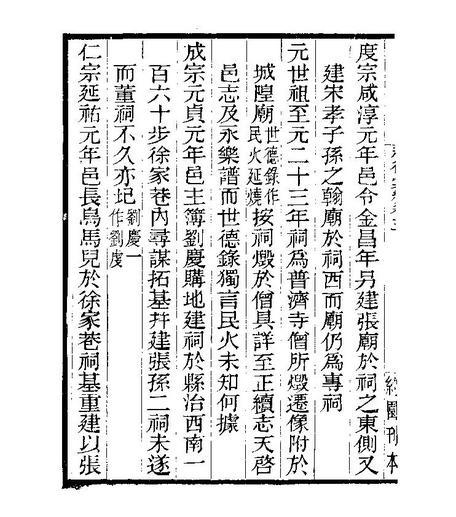 度宗咸淳元年邑令金昌年另建張廟於祠之東側又
建宋孝子孫之翰廟於祠西而廟仍爲專祠
元世祖至元二十三年祠爲普濟寺僧所燬遷像附於
城隍廟世德錄作民火延燒按祠燬於僧具詳至正續志天啓
邑志及永樂譜而世德錄獨言民火未知何據
成宗元貞元年邑主簿劉慶購地建祠於縣治西南一
百六十步徐家巷內尋謀拓基幷建張孫二祠未遂
而董祠不久亦圮劉慶一作劉度
仁宗延祐元年邑長烏馬兒於徐家巷祠基重建以張
刊本